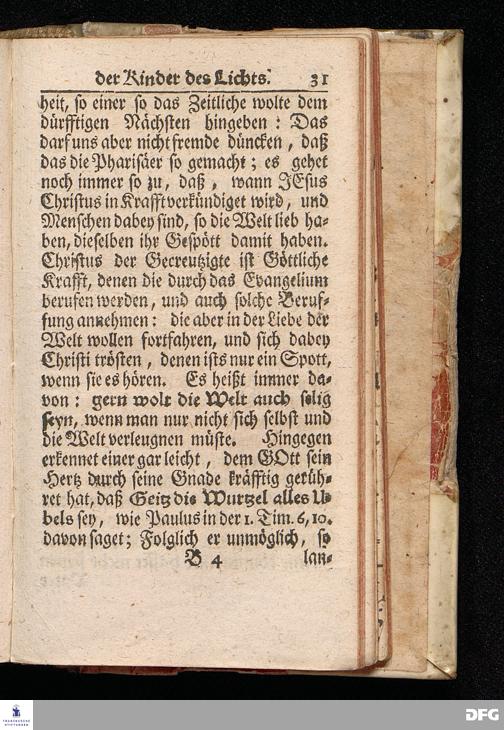 der Kinder des Lichts. 31
heit, so einer so das Zeitliche wolte dem
dürfftigen Nächsten hingeben: Das
darf uns aber nicht fremde düncken, daß
das die Pharisäer so gemacht; es gehet
noch immer so zu, daß, wann JEsus
Christus in Krafft verkündiget wird, und
Menschen dabey sind, so die Welt lieb ha-
ben, dieselben ihr Gespött damit haben.
Christus der Gecreutzigte ist Göttliche
Krafft, denen die durch das Evangelium
berufen werden, und auch solche Beruf-
fung annehmen: die aber in der Liebe der
Welt wollen fortfahren, und sich dabey
Christi trösten, denen ists nur ein Spott,
wenn sie es hören. Es heißt immer da-
von: gern wolt die Welt auch selig
seyn, wenn man nur nicht sich selbst und
die Welt verleugnen müste. Hingegen
erkennet einer gar leicht, dem GOtt sein
Hertz durch seine Gnade kräfftig gerüh-
ret hat, daß Geitz die Wurtzel alles U-
bels sey, wie Paulus in der 1. Tim. 6, 10.
davon saget; Folglich er unmöglich, so
B 4 lan-
FRANCKESCHE STIFTUNGEN
DFG